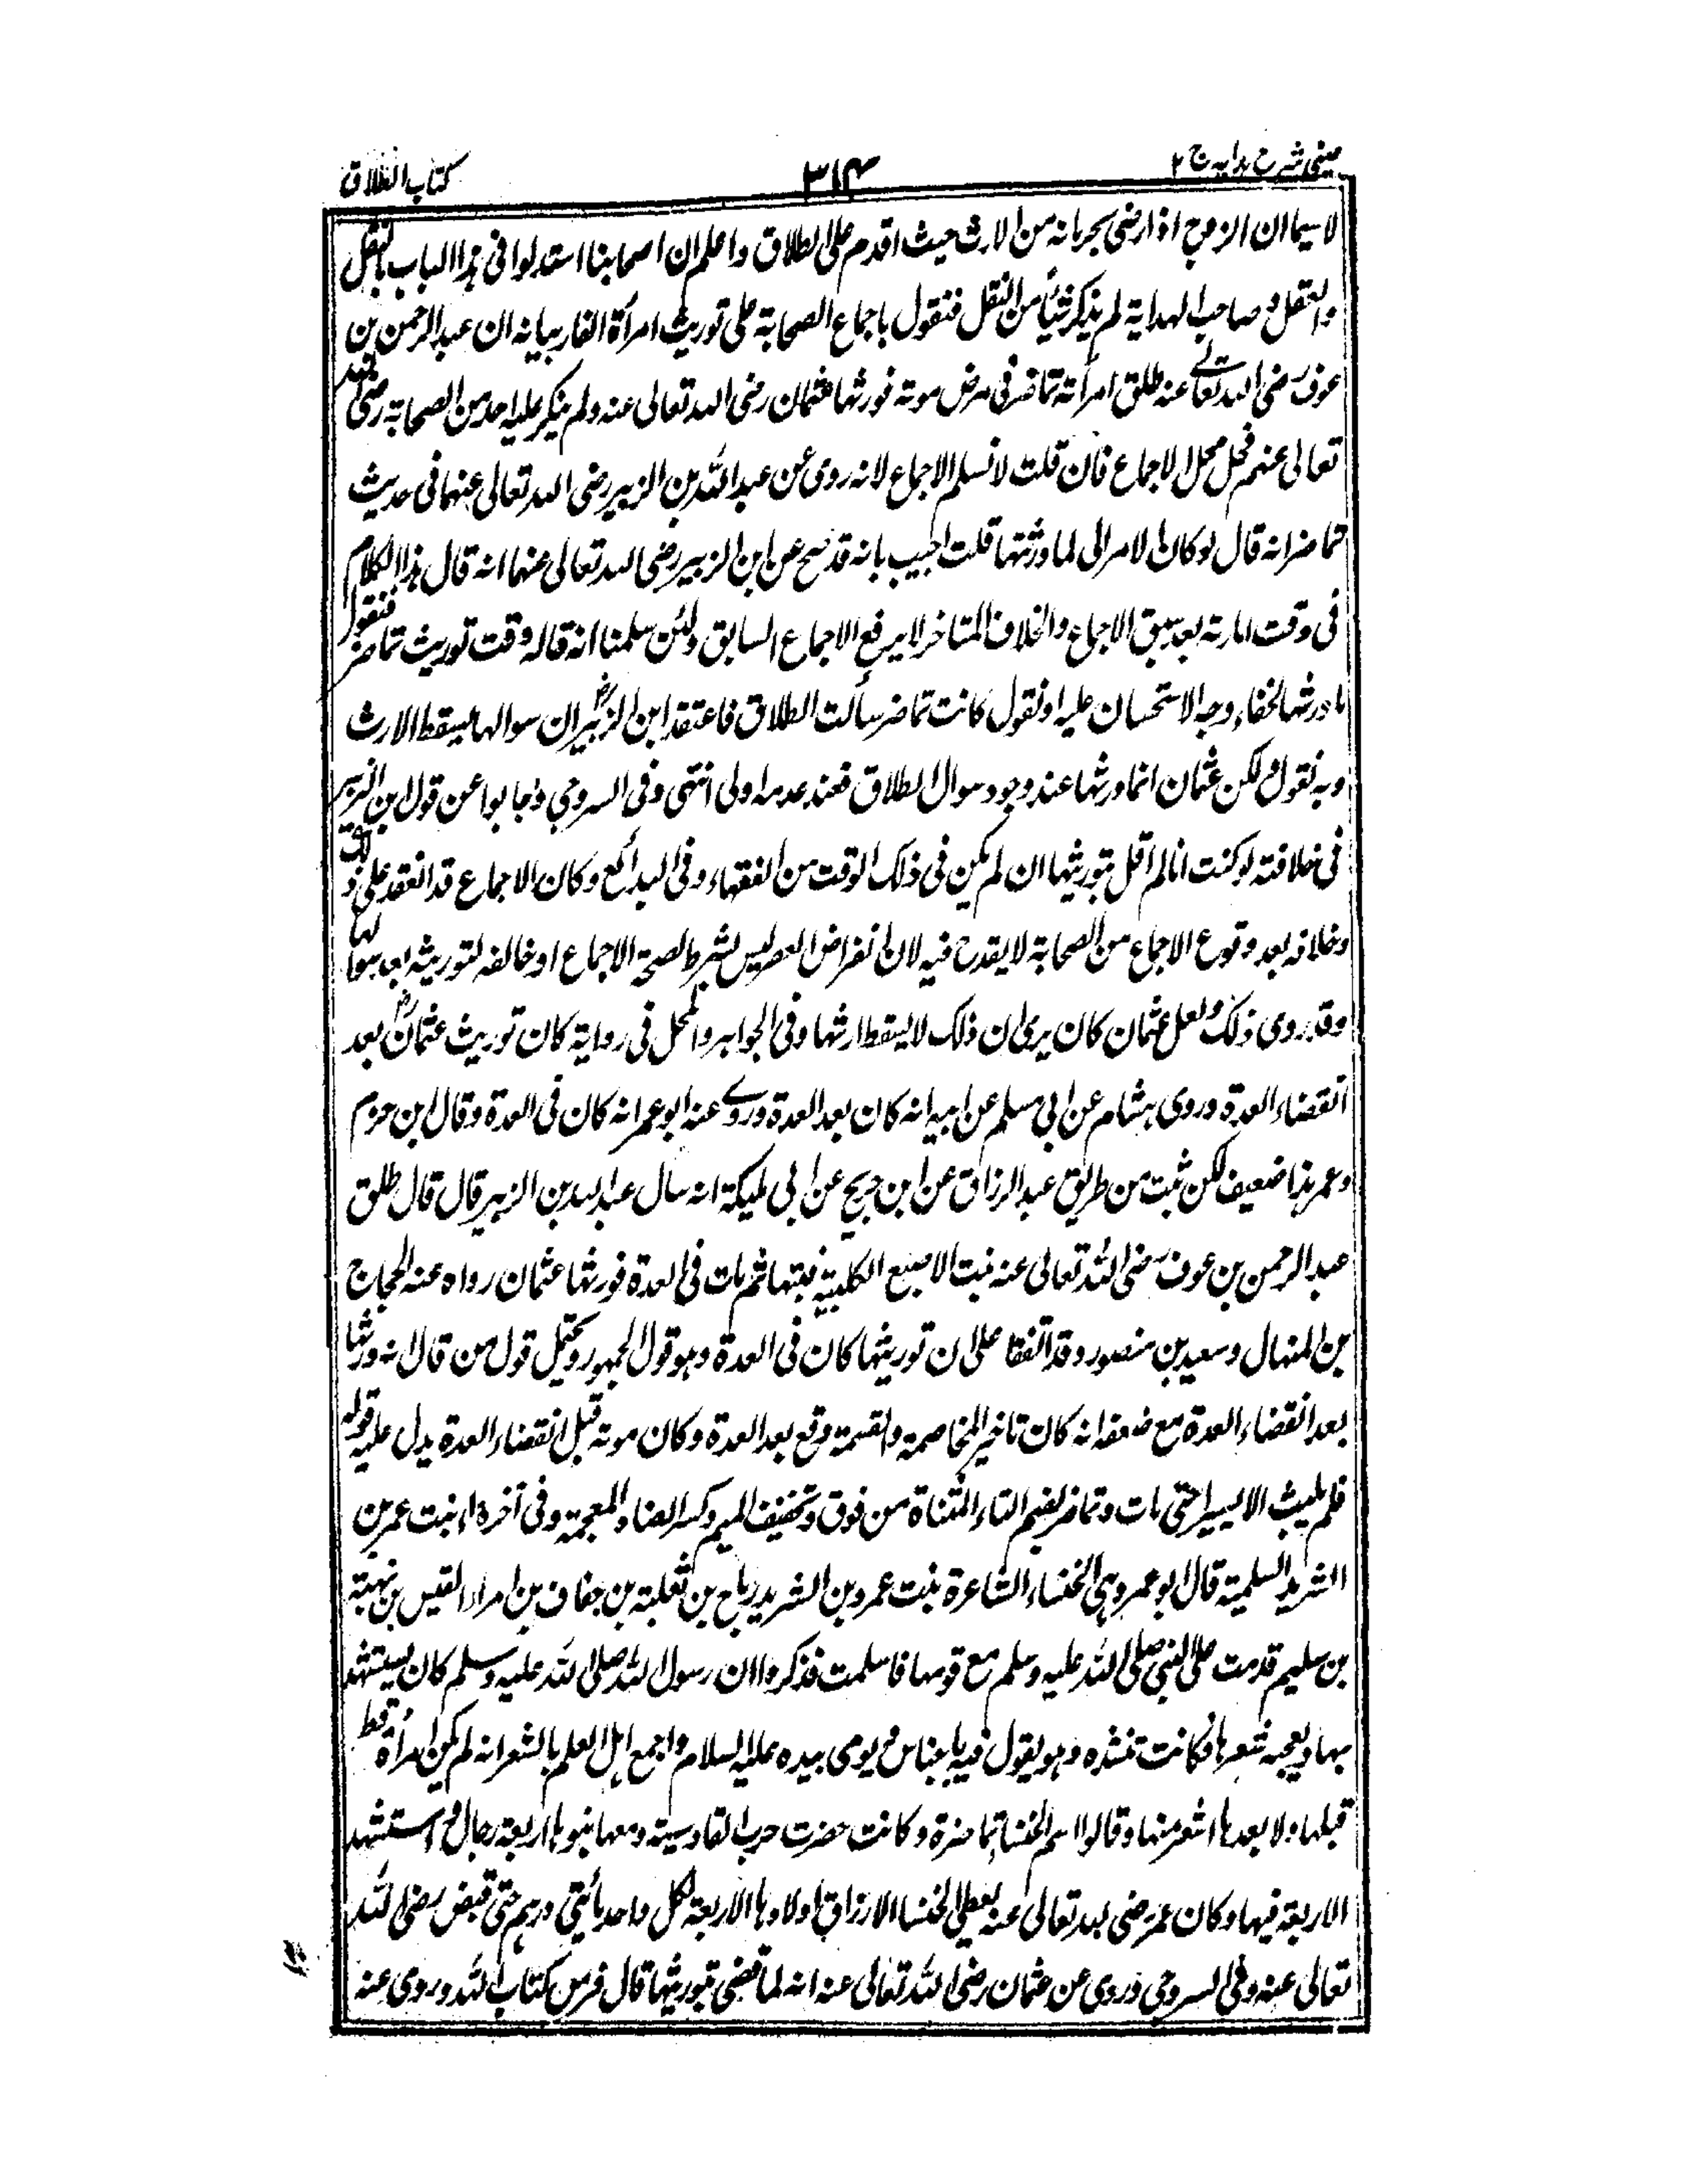 عینی شرح ہدایہ ج ٢
٣١٤
کتاب الطلاق
لا سیما ان الزوج اذا رضی بحرمانہ من الارث حیث اقدم علی الطلاق واعلم ان اصحابنا استدلوا فی ہذا الباب بالنقل
والعقل وصاحب الہدایة لم یذکر شیأ من النقل فنقول باجماع الصحابة علی توریث امرأة الفار بیانہ ان عبد الرحمن بن
عوف رضی اللہ تعالے عنہ طلق امرأتہ تماضر فی مرض موتہ فورثہا عثمان رضی اللہ تعالی عنہ ولم ینکر علیہ احد من الصحابة رضی اللہ
تعالی عنہم فحل محل الاجماع فان قلت لا نسلم الاجماع لانہ روی عن عبد اللہ بن الزبیر رضی اللہ تعالی عنہما فی حدیث
تماضر انہ قال لو کان الامر الی لما ورثتہا قلت اجیب بانہ قد صح عن ابن الزبیر رضی اللہ تعالی عنہما انہ قال ہذا الکلام
فی وقت امارتہ بعد سبق الاجماع والخلاف المتاخر لا یرفع الاجماع السابق ولئن سلمنا انہ قالہ وقت توریث تماضر فنقول
ما ورثہا لخفاء وجہ الاستحسان علیہ او نقول کانت تماضر سألت الطلاق فاعتقد ابن الزبیر ان سوالہا یسقط الارث
وبہ نقول لکن عثمان انما ورثہا عند وجود سوال الطلاق فعند عدمہ اولی انتہی وفی السروجی واجابوا عن قول ابن الزبیر
فی خلافتہ لو کنت انا لم اقل بتوریثہا ان لم یکن فی ذلک الوقت من الفقہاء وفی البدائع وکان الاجماع قد انعقد علی ذلک
وخلافہ بعد وقوع الاجماع من الصحابة لا یقدح فیہ لان انقراض العصر لیس بشرط لصحة الاجماع او خالفہ لتوریثہ بعد سوالہا
وقد روی ذلک ولعل عثمان کان یری ان ذلک لا یسقط ارثہا وفی الجواہر والمحلی فی روایة کان توریث عثمان بعد
انقضاء العدة وروی ہشام عن ابی مسلم عن ابیہ انہ کان بعد العدة وروے عنہ ابو عمر انہ کان فی العدة وقال ابن حزم
وعمر ہذا ضعیف لکن ثبت من طریق عبد الرزاق عن ابن جریج عن ابی ملیکة انہ سال عبد اللہ بن الزبیر قال قال طلق
عبد الرحمن بن عوف رضی اللہ تعالی عنہ بنت الاصبع الکلبیة فبتہا ثم مات فی العدة فورثہا عثمان رواہ عنہ الحجاج
بن المنہال وسعید بن منصور وقد اتفقا علی ان توریثہا کان فی العدة وہو قول الجمہور ویحتمل قول من قال انہ ورثہا
بعد انقضاء العدة مع ضعفہ انہ کان تاخیر المخاصمة والقسمة وقع بعد العدة وکان موتہ قبل انقضاء العدة یدل علیہ قولہ
فلم یلبث الا یسیرا حتی مات وتماضر بضم التاء المثناة من فوق وتخفیف المیم وکسر الضاد المعجمة وفی آخرہ راء بنت عمر بن
الشرید السلمیة قال ابو عمر وہی الخنساء الشاعرة بنت عمرو بن الشرید ریاح بن ثعلبة بن خفاف بن امراء القیس بن بہتة
بن سلیم قدمت علی النبی صلی اللہ علیہ وسلم مع قومہا فاسلمت فذکروا ان رسول اللہ صلی اللہ علیہ وسلم کان یستنشد
بہا ویعجبہ شعرہا فکانت تنشدہ وہو یقول فیہ یا خناس ویومی بیدہ علیہ السلام واجمع اہل العلم بالشعر انہ لم یکن امرأة قط
قبلہا ولا بعدہا اشعر منہا وقالوا اسم الخنساء تماضرة وکانت حضرت حرب القادسیة ومعہا بنوہا اربعة رجال واستشہد
الاربعة فیہا وکان عمر رضی اللہ تعالی عنہ یعطی الخنساء الارزاق اولادہا الاربعة لکل واحد مائتی درہم حتی قبض رضی اللہ
تعالی عنہ وفی السروجی وروی عن عثمان رضی اللہ تعالی عنہ انہ لما قضی بتوریثہا قال فر من کتاب اللہ وروی عنہ